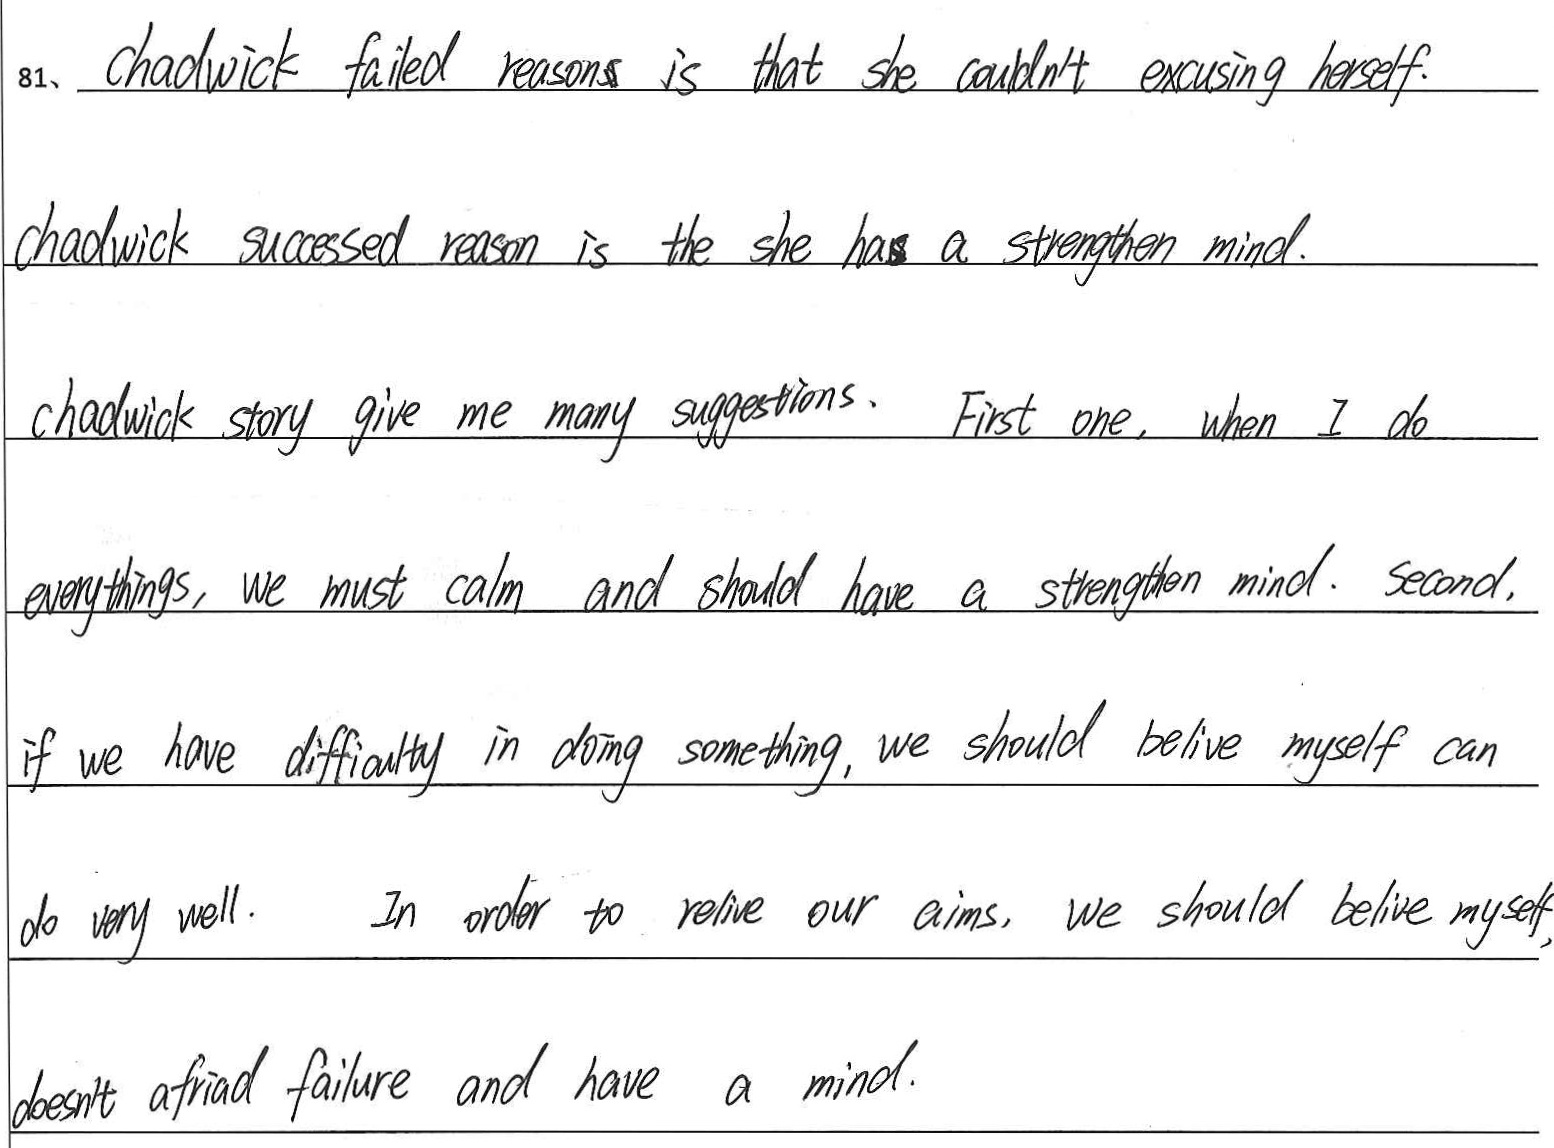 81、 chadwick failed reasons is that she couldn't excusing herself.
chadwick successed reason is the she has a strengthen mind.
chadwick story give me many suggestions. First one, when I do
everythings, we must calm and should have a strengthen mind. Second,
if we have difficulty in doing something, we should belive myself can
do very well. In order to relive our aims, we should belive myself,
doesn't afriad failure and have a mind.